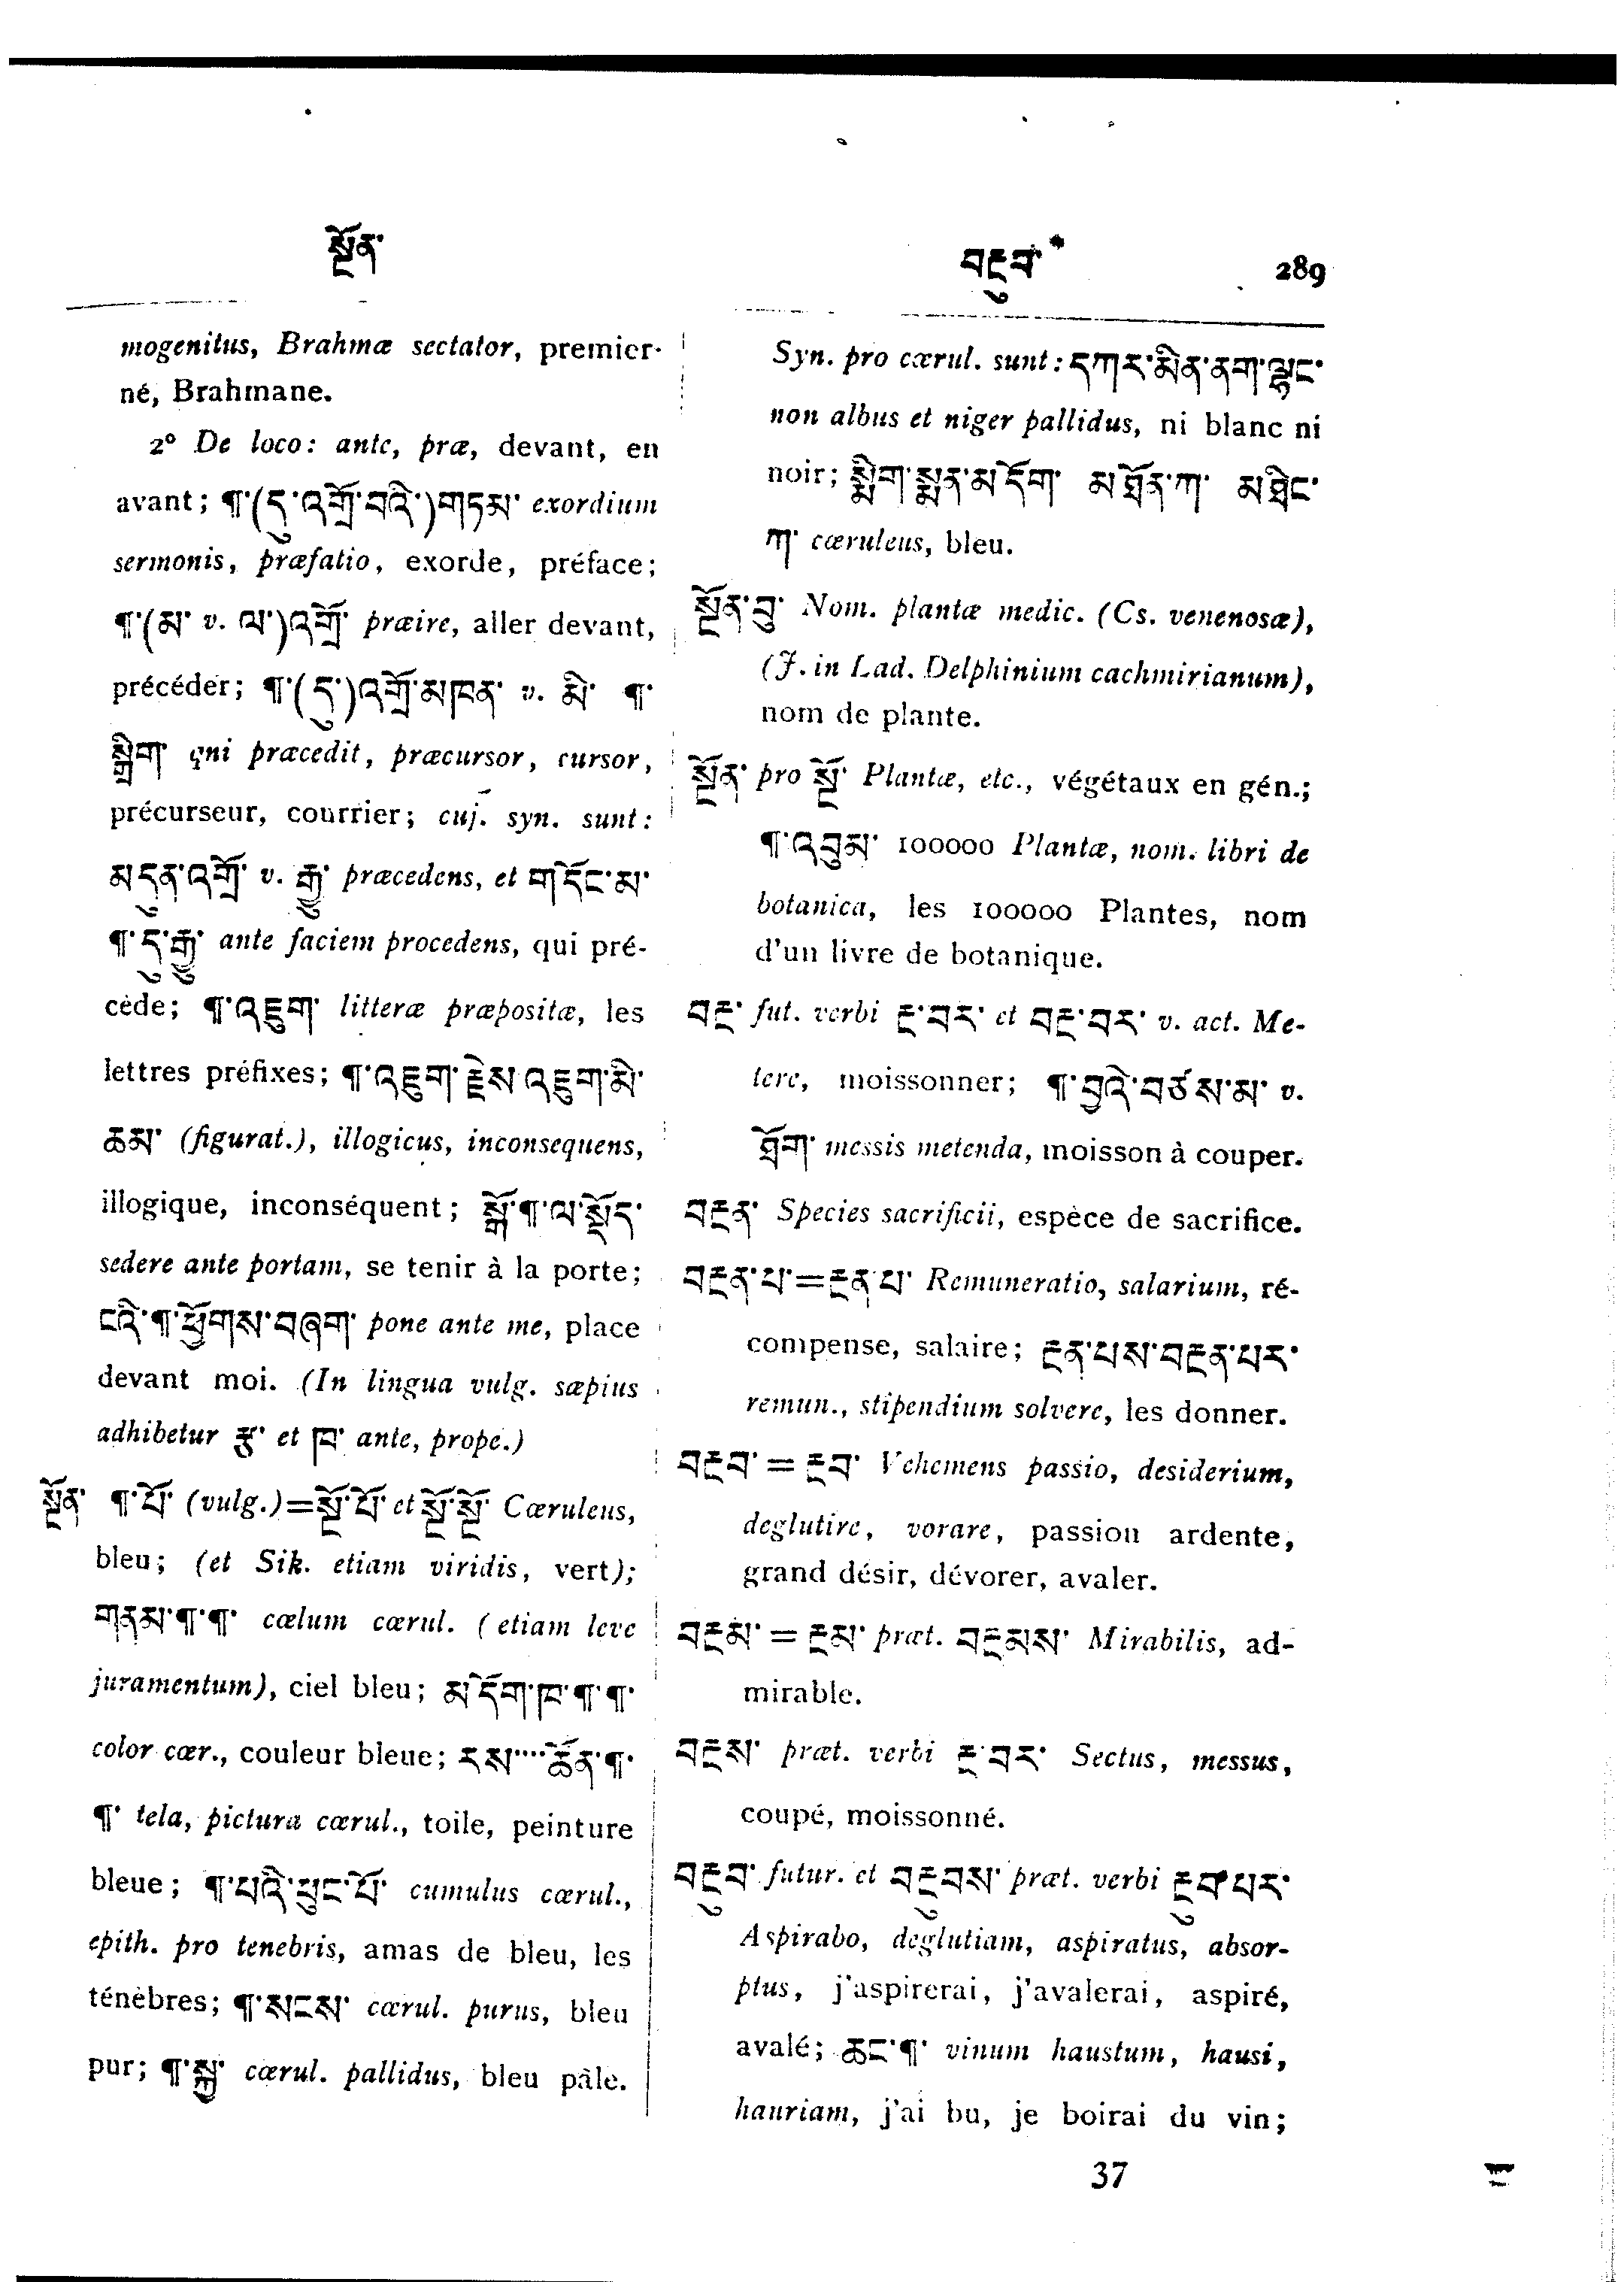 སྔོན་
བརྔུབ་
289
mogenitus, Brahmæ sectator, premier-
né, Brahmane.
2º De loco: ante, præ, devant, en
avant; ¶་(དུ་འགྲོ་བའི་)གཏམ་ exordium
sermonis, præfatio, exorde, préface;
¶་(མ་ v. ལ་)འགྲོ་ præire, aller devant,
précéder; ¶་(དུ་)འགྲོ་མཁན་ v. མི་ ¶་
སྒྲིག་ qui præcedit, præcursor, cursor,
précurseur, courrier; cuj. syn. sunt:
མདུན་འགྲོ་ v. རྒྱུ་ præcedens, et གདོང་མ་
¶་དུ་རྒྱུ་ ante faciem procedens, qui pré-
cède; ¶་འཇུག་ litteræ præpositæ, les
lettres préfixes; ¶་འཇུག་རྗེས་འཇུག་མི་
ཆམ་ (figurat.), illogicus, inconsequens,
illogique, inconséquent; སྒོ་¶་ལ་སྡོད་
sedere ante portam, se tenir à la porte;
ངའི་¶་ཕྱོགས་བཞག་ pone ante me, place
devant moi. (In lingua vulg. sæpius
adhibetur རྩ་ et ཁ་ ante, prope.)
སྔོན་ ¶་པོ་ (vulg.)=སྔོ་པོ་ et སྔོ་སྔོ་ Cæruleus,
bleu; (et Sik. etiam viridis, vert);
གནམ་¶་¶་ cælum cærul. (etiam leve
juramentum), ciel bleu; མདོག་ཁ་¶་¶་
color cær., couleur bleue; རས་....ཚོན་¶་
¶་ tela, pictura cærul., toile, peinture
bleue; ¶་པའི་ཕུང་པོ་ cumulus cærul.,
epith. pro tenebris, amas de bleu, les
ténèbres; ¶་སངས་ cærul. purus, bleu
pur; ¶་སྐྱ་ cærul. pallidus, bleu pâle.
Syn. pro cærul. sunt: དཀར་མིན་ནག་ལྗང་
non albus et niger pallidus, ni blanc ni
noir; སྨིག་སྨན་མདོག་ མཐོན་ཀ་ མཐིང་
ཀ་ cæruleus, bleu.
སྔོན་བུ་ Nom. plantæ medic. (Cs. venenosæ),
(J. in Lad. Delphinium cachmirianum),
nom de plante.
སྔོན་ pro སྔོ་ Plantæ, etc., végétaux en gén.;
¶་འབུམ་ 100000 Plantæ, nom. libri de
botanica, les 100000 Plantes, nom
d'un livre de botanique.
བརྔ་ fut. verbi རྔ་བར་ et བརྔ་བར་ v. act. Me-
tere, moissonner; ¶་བྱའི་བཙས་མ་ v.
ཐོག་ messis metenda, moisson à couper.
བརྔན་ Species sacrificii, espèce de sacrifice.
བརྔན་པ་=རྔན་པ་ Remuneratio, salarium, ré-
compense, salaire; རྔན་པས་བརྔན་པར་
remun., stipendium solvere, les donner.
བརྔབ་ = རྔབ་ Vehemens passio, desiderium,
deglutire, vorare, passion ardente,
grand désir, dévorer, avaler.
བརྔམ་ = རྔམ་ præt. བརྔམས་ Mirabilis, ad-
mirable.
བརྔས་ præt. verbi རྔ་བར་ Sectus, messus,
coupé, moissonné.
བརྔུབ་ futur. et བརྔུབས་ præt. verbi རྔུབ་པར་
Aspirabo, deglutiam, aspiratus, absor-
ptus, j'aspirerai, j'avalerai, aspiré,
avalé; ཆང་¶་ vinum haustum, hausi,
hauriam, j'ai bu, je boirai du vin;
37